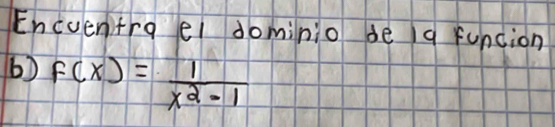 Encuentra el dominio de la función
b) F(x) = 1/(x² - 1)